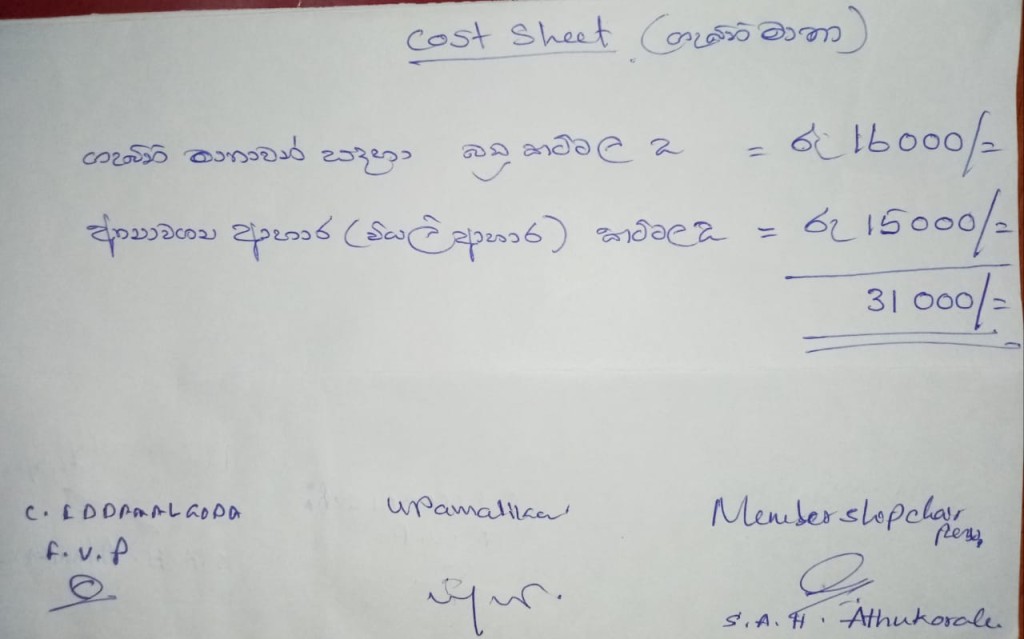 Cost Sheet (ගැබිනි මාතා)
ගැබිනි මාතාවන් සඳහා බඩු කට්ටල ය = රු 16000/=
අත්‍යාවශ්‍ය ආහාර (වියලි ආහාර) කට්ටලය = රු 15000/=
31 000/=
C. EDDAWALGODA
F.V.P
Upamalika
Membership chair
S.A.H. Athukorale